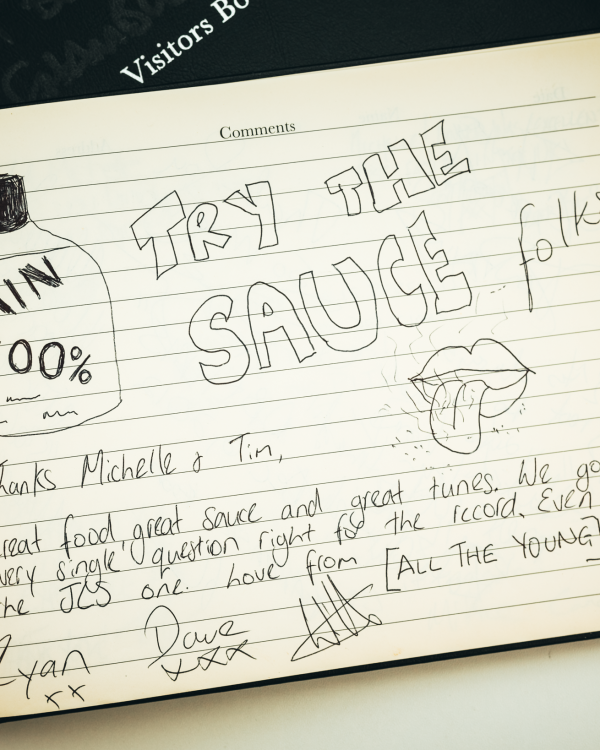 Visitors Bo
Comments
TRY THE
SAUCE folks
AIN
00%
hanks Michelle & Tim,
reat food, great sauce and great tunes. We go
very single question right for the record. Even
he JLS one. Love from [ALL THE YOUNG]
Ryan
xx
Dave
xxx